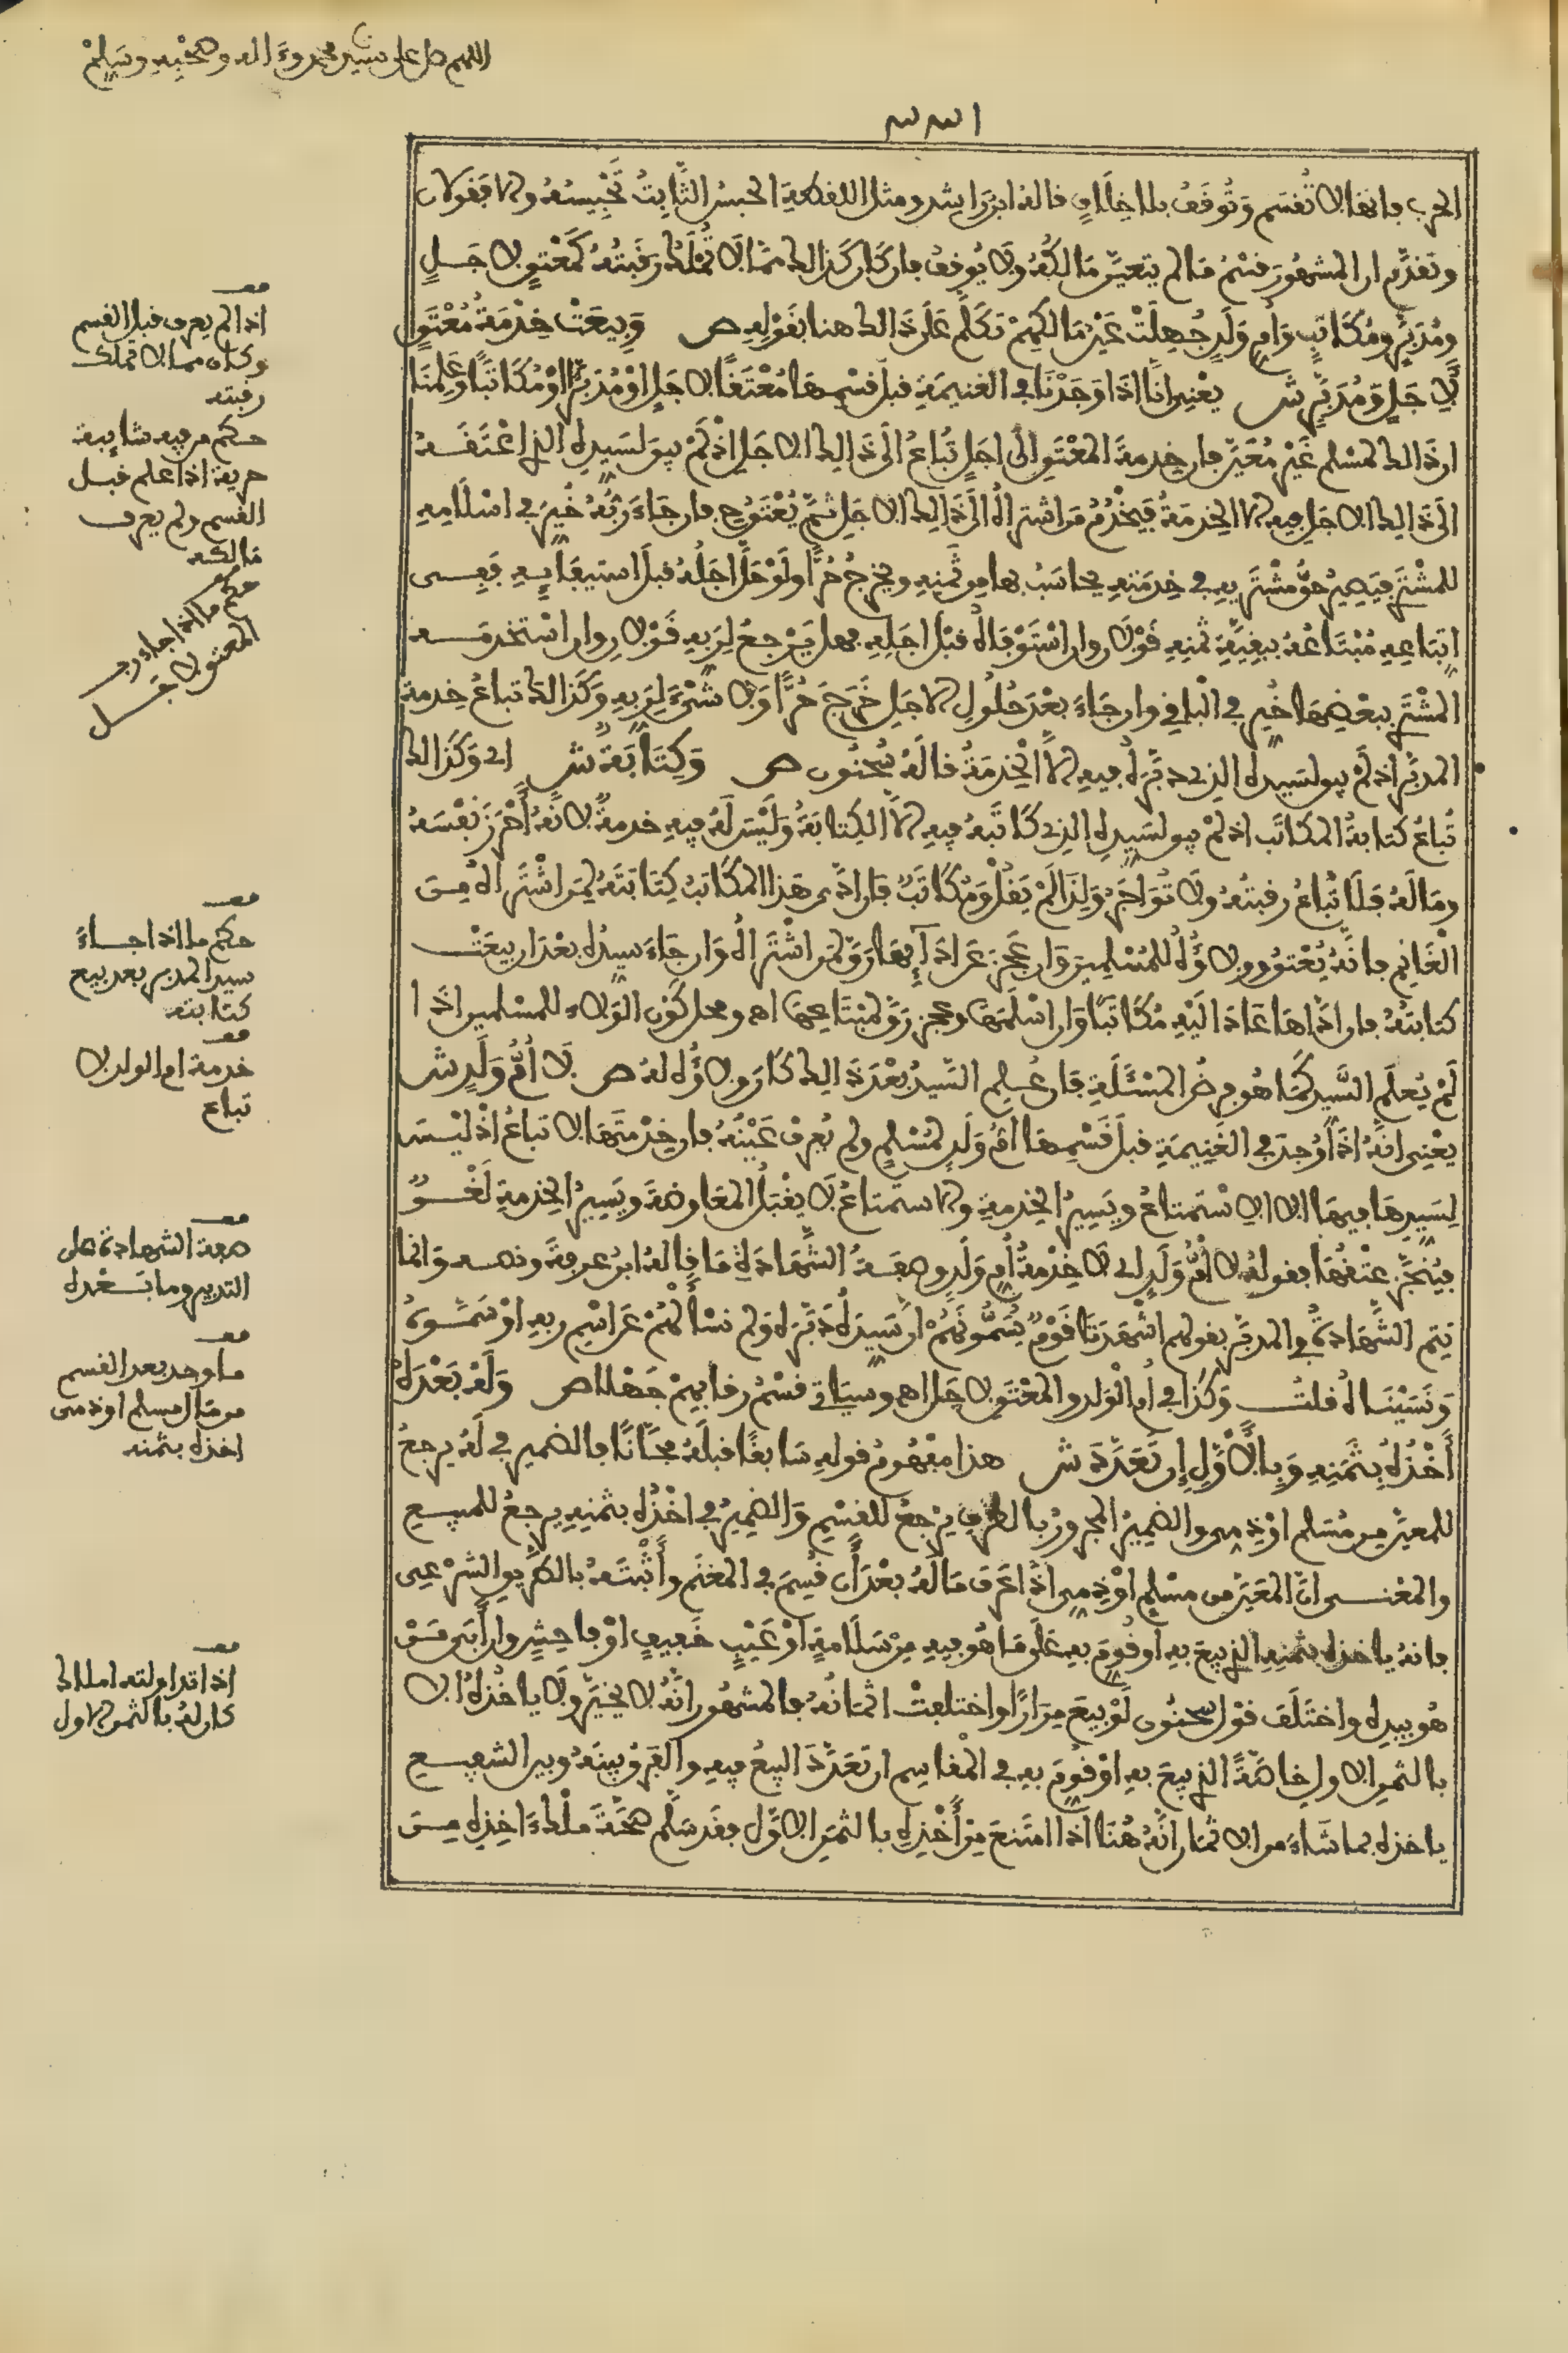 اللهم صل على سيدنا محمد وءاله وصحبه وسلم
الحرب فإنها لا تقسم وتوقف بلا خلاف قاله ابن راشد ومثل اللقطة الحبس الثابت تحبيسه ولا بقولان
وتقدم ان المشهور قسم ما لم يتعين مالكه ولا يوقف فإن كان كذلك مما لا تملك رقبته كمعتق لأجل
ومدبر ومكاتب وأم ولد جهلت عين مالكهم تكلم على ذلك هنا بقوله ص وبيعت خدمة معتق
لأجل ومدبر ش يعني انا اذا وجدنا في الغنيمة قبل قسمها معتقا لأجل او مدبرا او مكاتبا وعلمنا
ان ذلك لمسلم غير معين فإن خدمة المعتق الى اجل تباع الى ذلك الاجل اذ لم يبق لسيده الذي اعتقه
الى ذلك الاجل فيه الا الخدمة فيخدم من اشتراه الى ذلك الاجل ثم يعتق فإن جاء ربه خير في اسلامه
للمشتري فيصير حق مشتريه في خدمته يحاسب بها من ثمنه ويخرج حرا ولو حل اجله قبل استيفائه ففي
اتباعه مبتاعه ببقية ثمنه قولان وان استوفاه قبل اجله فهل يرجع لربه قولان وان استخدمه
المشتري بعضها خير في الباقي وان جاء بعد حلول الاجل خرج حرا ولا شيء لربه وكذلك تباع خدمة
المدبر اذ لم يبق لسيده الذي دبره فيه الا الخدمة قاله سحنون ص وكتابة ش اي وكذلك
تباع كتابة المكاتب اذ لم يبق لسيده الذي كاتبه فيه الا الكتابة وليس له فيه خدمة لانه أحرز نفسه
وماله فلا تباع رقبته ولا تؤاجر ولذا لم يقل ومكاتب فإن ادى هذا المكاتب كتابته لمن اشتراه من
الغانم فإنه يعتق وولاؤه للمسلمين وان عجز عن ادائها رق لمن اشتراه وان جاء سيده بعد ان بيعت
كتابته فإن اداها عاد اليه مكاتبا وان اسلمها وعجز رق لمبتاعها اهـ ومحل كون الولاء للمسلمين اذا
لم يعلم السيد كما هو فرض المسئلة فإن علم السيد بعد ذلك كان ولاؤه له ص لا أم ولد ش
يعني انه اذا وجد في الغنيمة قبل قسمها ام ولد لمسلم ولم يعرف عينه فإن خدمتها لا تباع اذ ليس
لسيدها فيها الا الاستمتاع ويسير الخدمة والاستمتاع لا يقبل المعاوضة ويسير الخدمة لغو
فينجز عتقها فقوله لا أم ولد اي لا خدمة أم ولد وصفة الشهادة ما قاله ابن عرفة ونصه وانما
تتم الشهادة في المدبر بقولهم اشهدنا قوم يسمونهم ان سيده دبره ولم نسألهم عن اسم ربه او سموه
ونسيناه قلت وكذا في أم الولد والمعتق لأجل اهـ وسيأتي قسم رقابهم جهلا ص وله بعده
أخذه بثمنه وبالأول إن تعدد ش هذا مفهوم قوله سابقا قبله مجانا فالضمير في له يرجع
للمعين من مسلم او ذمي والضمير المجرور بالظرف يرجع للقسم والضمير في اخذه بثمنه يرجع للمبيع
والمعنى ان المعين من مسلم او ذمي اذا عرف ماله بعد أن قسم في المغنم وأثبته بالطريق الشرعي
فإنه ياخذه بثمنه الذي بيع به او قوم به على ما هو فيه من سلامة او عيب خفيف او فاحش وان أبى من
هو بيده واختلف قول سحنون لو بيع مرارا واختلفت اثمانه فالمشهور انه لا يخير ولا ياخذه الا
بالثمن الاول خاصة الذي بيع به او قوم به في المقاسم ان تعدد البيع فيه والفرق بينه وبين الشفيع
ياخذه بما شاء من الاثمان انه هنا اذا امتنع من أخذه بالثمن الاول فقد سلم صحة ملك اخذه من
اذا لم يعرف قبل القسم
وكان مما لا تملك
رقبته
حكم من فيه شايبة
حرية اذا علم قبل
القسم ولم يعرف
مالكه
حكم ما اذا جاء رب
المعتق لاجل
حكم ما اذا جاء
سيد المدبر بعد بيع
كتابته
خدمة ام الولد لا
تباع
صفة الشهادة على
التدبير وما بعده
ما وجد بعد القسم
من مال مسلم او ذمي
اخذه بثمنه
اذا تداولته املاك
كان له بالثمن الاول